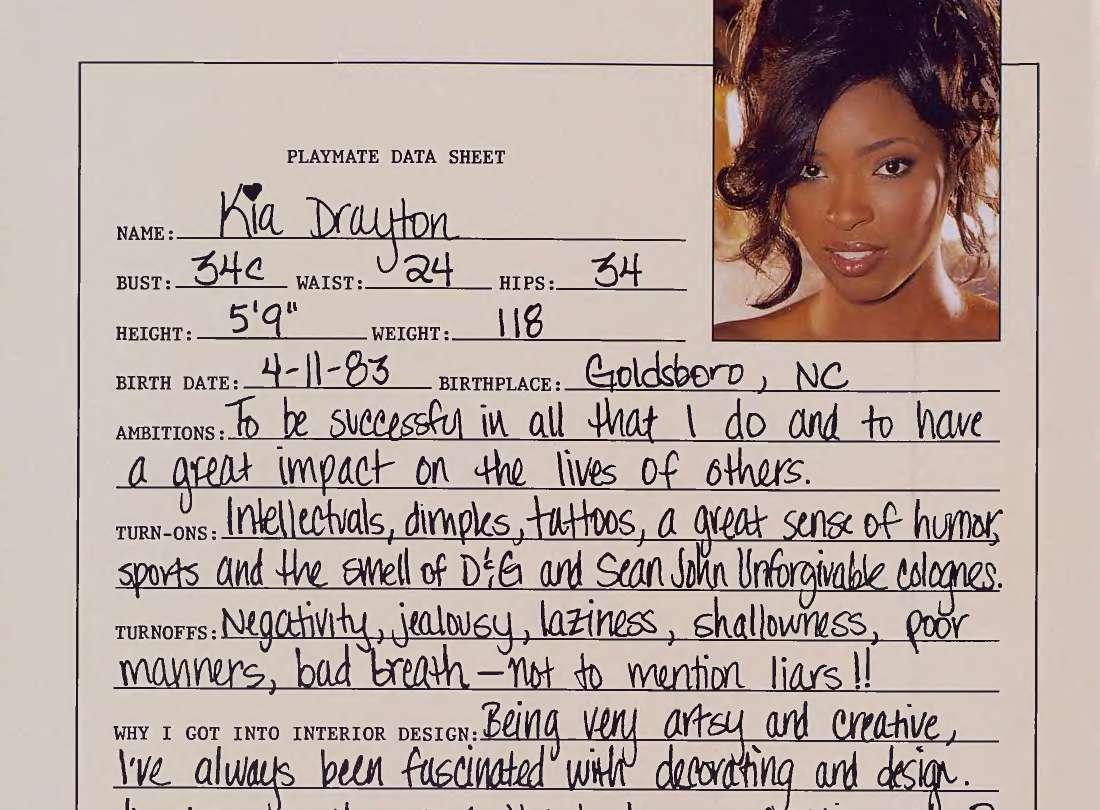 PLAYMATE DATA SHEET
NAME: Kia Drayton
BUST: 34C WAIST: 24 HIPS: 34
HEIGHT: 5'9" WEIGHT: 118
BIRTH DATE: 4-11-83 BIRTHPLACE: Goldsboro, NC
AMBITIONS: To be successful in all that I do and to have
a great impact on the lives of others.
TURN-ONS: Intellectuals, dimples, tattoos, a great sense of humor,
sports and the smell of D&G and Sean John Unforgivable colognes.
TURNOFFS: Negativity, jealousy, laziness, shallowness, poor
manners, bad breath — not to mention liars!!
WHY I GOT INTO INTERIOR DESIGN: Being very artsy and creative,
I've always been fascinated with decorating and design.